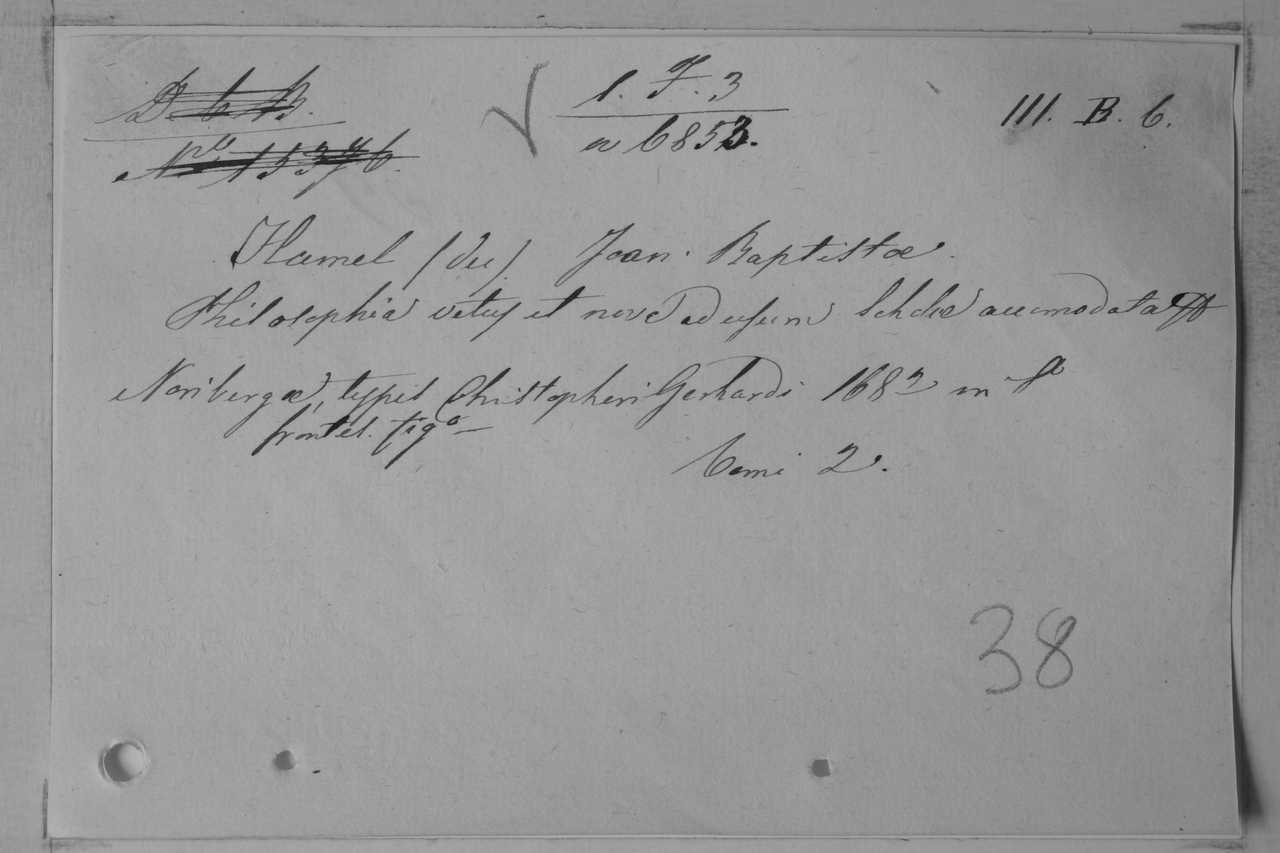 D. b B.
Nro 15376.
l. F. 3
a 6853.
III. B. 6.
Hamel (du). Joan. Baptistae.
Philosophia vetus et nova ad usum Scholae accomodata
Noribergae, typis Christopheri Gerhardi 1682 in
frontes. fig.
Tomi 2.
38